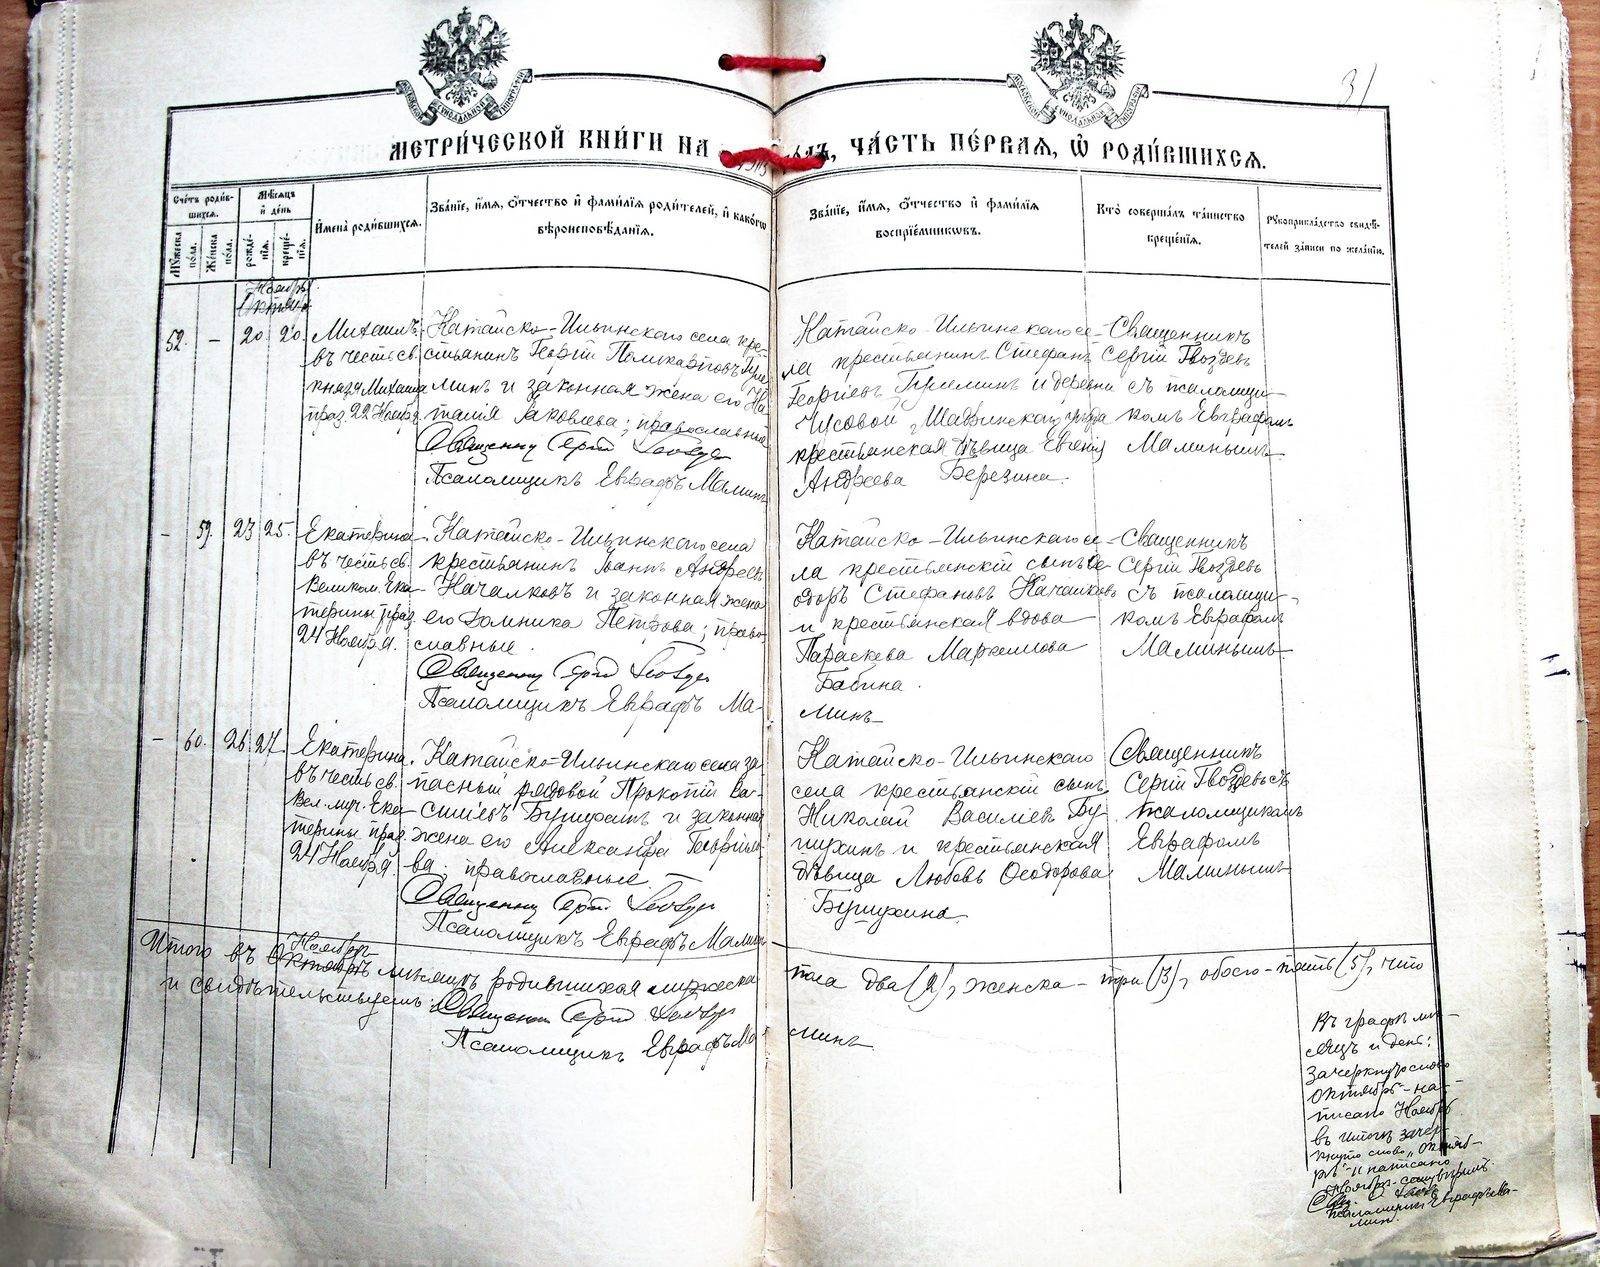 31
МЕТРИ́ЧЕСКОЙ КНИ́ГИ НА
ГОДЪ, ЧА́СТЬ ПЕ́РВАЯ, Ѡ РОДИ́ВШИХСЯ.
Сче́тъ роди́в-
шихся.
Мѣ́сяцъ
и де́нь
Мꙋжеска по́ла.
Же́нска по́ла.
рожде́-
нїя.
креще́-
нїя.
И҆мена̀ роди́вшихся.
Зва́нїе, и҆́мя, ѻ҆́тчество и҆ фами́лїя роди́телей, и҆ како́гѡ
вѣроисповѣ́данїя.
Зва́нїе, и҆́мя, ѻ҆́тчество и҆ фами́лїя
воспрїе́мникѡвъ.
Кто̀ соверша́лъ та́инство
креще́нїя.
Рꙋкоприкла́дство свидѣ́-
телей за́писи по жела́нїи.
Ноябрь
Октябрь
52. – 20. 20. Михаилъ
въ честь св.
князя Михаила
праз. 22 Ноября
Катайско-Ильинскаго села кре-
стьянинъ Георгій Поликарповъ
минъ и законная жена его На-
талія Яковлева; православные
Священникъ Сергій Гвоздевъ
Псаломщикъ Евграфъ Маминъ
Катайско-Ильинскаго се-
ла крестьянинъ Стефанъ
Георгіевъ и деревни
Чусовой, Шадринскаго уѣзда
крестьянская дѣвица Евгенія
Андреева Березина.
Священникъ
Сергій Гвоздевъ
съ псаломщи-
комъ Евграфомъ
Маминымъ
– 59. 23 25. Екатерина
въ честь св.
Великом. Ека-
терины праз.
24 Ноября.
Катайско-Ильинскаго села
крестьянинъ Іоаннъ Андреевъ
Началковъ и законная жена
его Домника Петрова; право-
славные.
Священникъ Сергій Гвоздевъ
Псаломщикъ Евграфъ Ма-
Катайско-Ильинскаго се-
ла крестьянскій сынъ Ѳе-
одоръ Стефановъ Началковъ
и крестьянская вдова
Параскева Маркелова
Бабина.
минъ
Священникъ
Сергій Гвоздевъ
съ псаломщи-
комъ Евграфомъ
Маминымъ
– 60. 26 27. Екатерина
въ честь св.
Вел. муч. Ека-
терины праз.
24 Ноября.
Катайско-Ильинскаго села за-
пасный рядовой Прокопій Ва-
сильевъ Бушухинъ и законная
жена его Александра Георгіе-
ва; православные.
Священникъ Сергій Гвоздевъ
Псаломщикъ Евграфъ Маминъ
Катайско-Ильинскаго
села крестьянскій сынъ
Николай Василіевъ Бу-
шухинъ и крестьянская
дѣвица Любовь Ѳеодорова
Бушухина.
Священникъ
Сергій Гвоздевъ съ
псаломщикомъ
Евграфомъ
Маминымъ
Ноябрѣ
Итого въ Октябрѣ мѣсяцѣ родившихся мужеска
пола два (2), женска – три (3), обоего – пять (5), что
и свидѣтельствуемъ: Священникъ Сергій Гвоздевъ
Псаломщикъ Евграфъ Ма-
минъ
Въ графѣ мѣ-
сяцъ и день:
зачеркнуто слово
октябрь – на-
писано Ноябрь
въ итогѣ зачер-
кнуто слово „октяб-
рѣ" и написано
Ноябрѣ
Псаломщикъ Евграфъ Ма-
минъ.